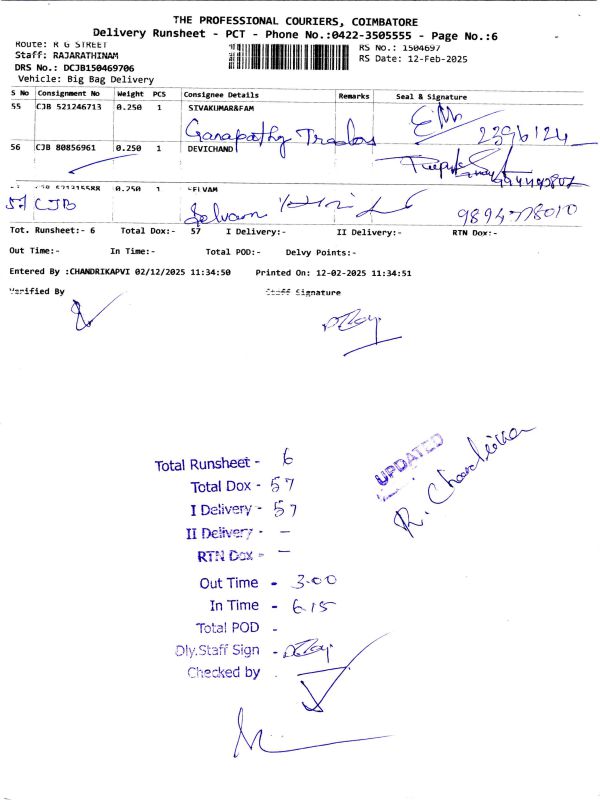 THE PROFESSIONAL COURIERS, COIMBATORE
Delivery Runsheet - PCT - Phone No.:0422-3505555 - Page No.:6
Route: R G STREET
RS No.: 1504697
Staff: RAJARATHINAM
RS Date: 12-Feb-2025
DRS No.: DCJB150469706
Vehicle: Big Bag Delivery
S No Consignment No Weight PCS Consignee Details Remarks Seal & Signature
55 CJB 521246713 0.250 1 SIVAKUMAR&FAM
Ganapathy Traders 2396124
56 CJB 80856961 0.250 1 DEVICHAND
0.250 1 SELVAM
57 CJB Selvam 9894778010
Tot. Runsheet:- 6 Total Dox:- 57 I Delivery:- II Delivery:- RTN Dox:-
Out Time:- In Time:- Total POD:- Delvy Points:-
Entered By :CHANDRIKAPVI 02/12/2025 11:34:50 Printed On: 12-02-2025 11:34:51
Verified By Staff Signature
UPDATED
R. Chandrika
Total Runsheet - 6
Total Dox - 57
I Delivery - 57
II Delivery - —
RTN Dox - —
Out Time - 3.00
In Time - 6.15
Total POD -
Dly.Staff Sign -
Checked by .